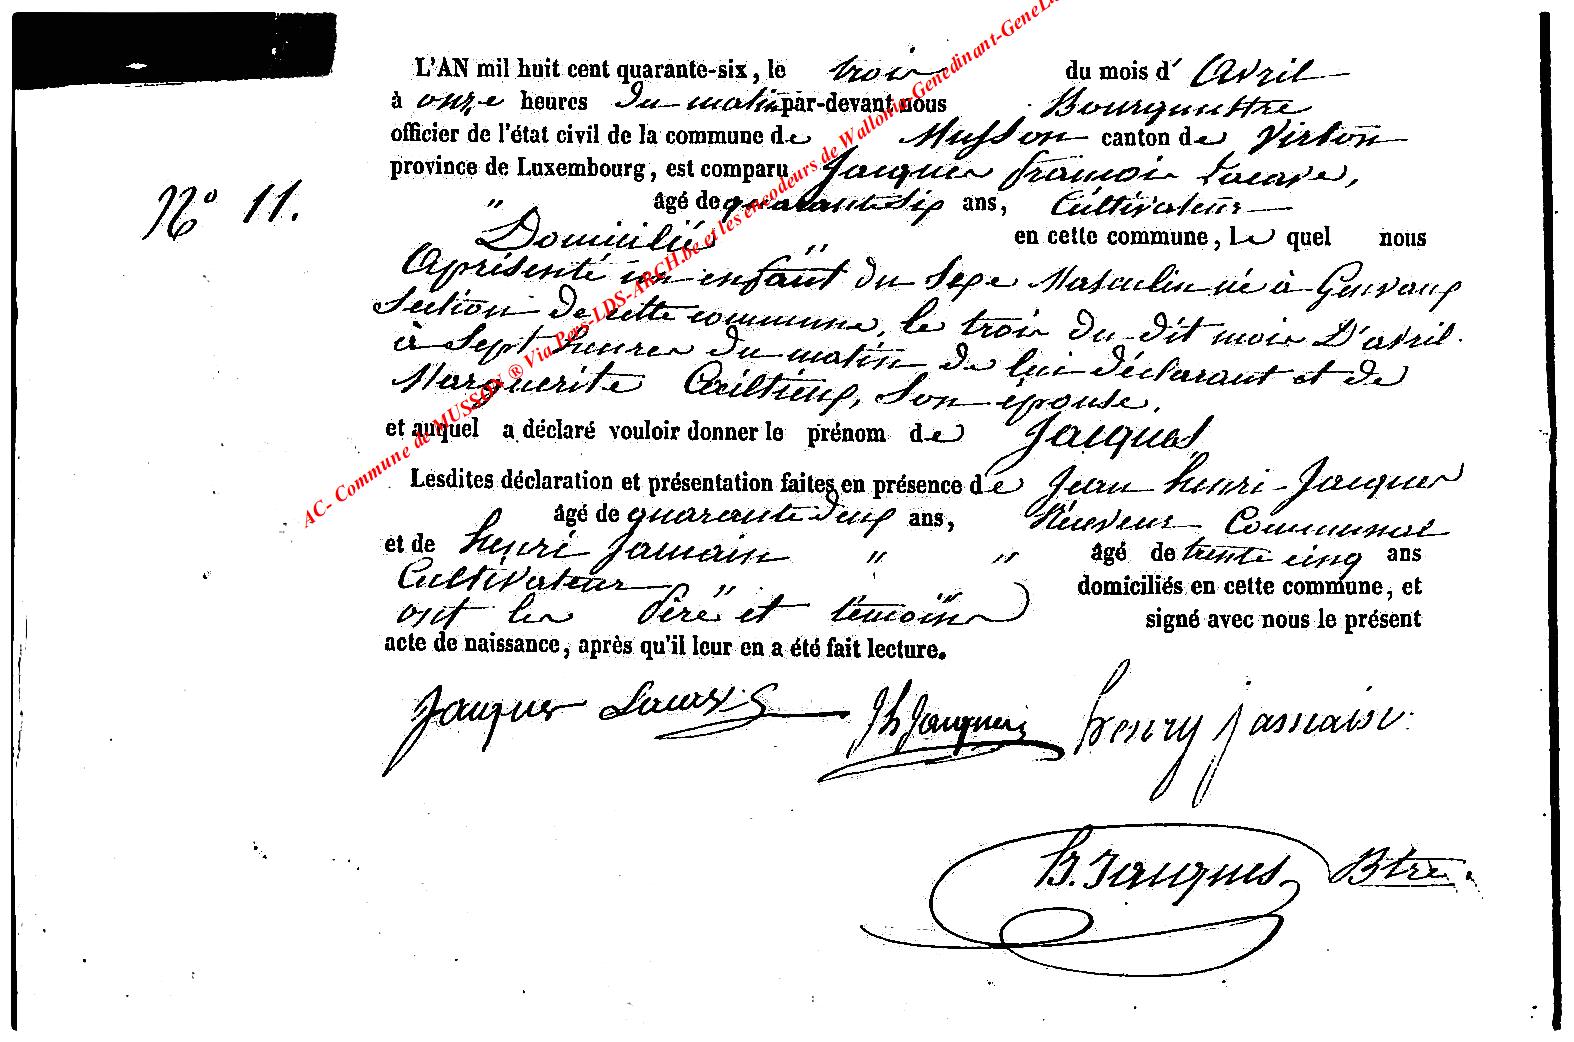 L'AN mil huit cent quarante-six, le trois du mois d'Avril
à onze heures du matin par-devant nous Bourgmestre
officier de l'état civil de la commune de Musson canton de Virton
province de Luxembourg, est comparu Jacques françois
N° 11. " âgé de quarante six ans, Cultivateur
Domicilié " en cette commune, le quel nous
a présenté un enfant du Sexe Masculin né à Gennaux
Section de cette commune, le trois du dit mois D'avril
à Sept heures du matin de lui déclarant et de
Marguerite son épouse.
et auquel a déclaré vouloir donner le prénom de Jacques
Lesdites déclaration et présentation faites en présence de Jean henri Jacques
âgé de quarante deux ans, Receveur Communal
et de henri Jamain " " âgé de trente cinq ans
Cultivateur " " domiciliés en cette commune, et
ont les Père et témoins signé avec nous le présent
acte de naissance, après qu'il leur en a été fait lecture.
Jacques Jh Jacques henry
h. Jacques Btre.
AC- Commune de MUSSON ® Via Pers-LDS-ARCH.be et les encodeurs de Wallonia Genedinant-GeneLu